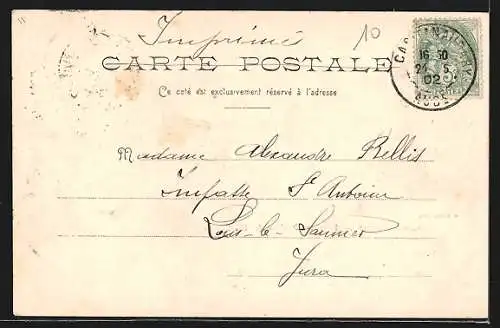 Imprimé
10
CARTE POSTALE
Ce coté est exclusivement réservé à l'adresse
16 50
5
02
AUDE
Madame Alexandre Rellis
Impasse St Antoine
Lons-le-Saunier
Jura